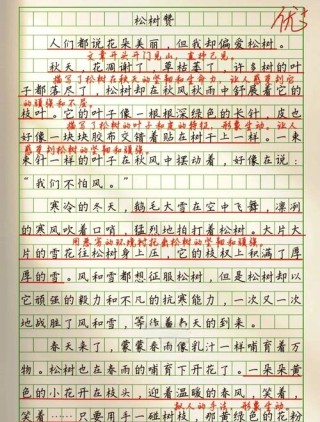 优
松树赞
人们都说花朵美丽，但我却偏爱松树。
文章开头开门见山，直抒己见。
秋天，花凋谢了，草枯萎了，许多树的叶
描写了松树在秋天的坚韧和生命力，让人感受到它
子都落尽了，松树却在秋风秋雨中舒展着它的
的顽强和不屈。
枝叶。它的叶子像一根根深绿色的长针，皮也
描写了松树的叶子和皮的特征，形象生动，让人
好像一块块胶布交错着贴在树干上一样。一束
感受到松树的坚韧和顽强。
束针一样的叶子在秋风中摆动着，好像在说：
“我们不怕风。”
寒冷的冬天，鹅毛大雪在空中飞舞，凛冽
的寒风吹着口哨，猛烈地拍打着松树。大片大
用恶劣的环境衬托出松树的坚韧和顽强。
片的雪花往松树身上压，它的枝杈上积满了厚
厚的雪。风和雪都想征服松树，但是松树却以
它顽强的毅力和不凡的抗寒能力，一次又一次
地战胜了风和雪，等待着春天的到来。
春天来了，蒙蒙春雨像乳汁一样哺育着万
物。松树也在春雨的哺育下开花了。一朵朵黄
色的小花开在枝头，迎着温暖的春风，笑着，
拟人的手法，形象生动。
笑着……只要用手一碰树枝，那黄色的花粉